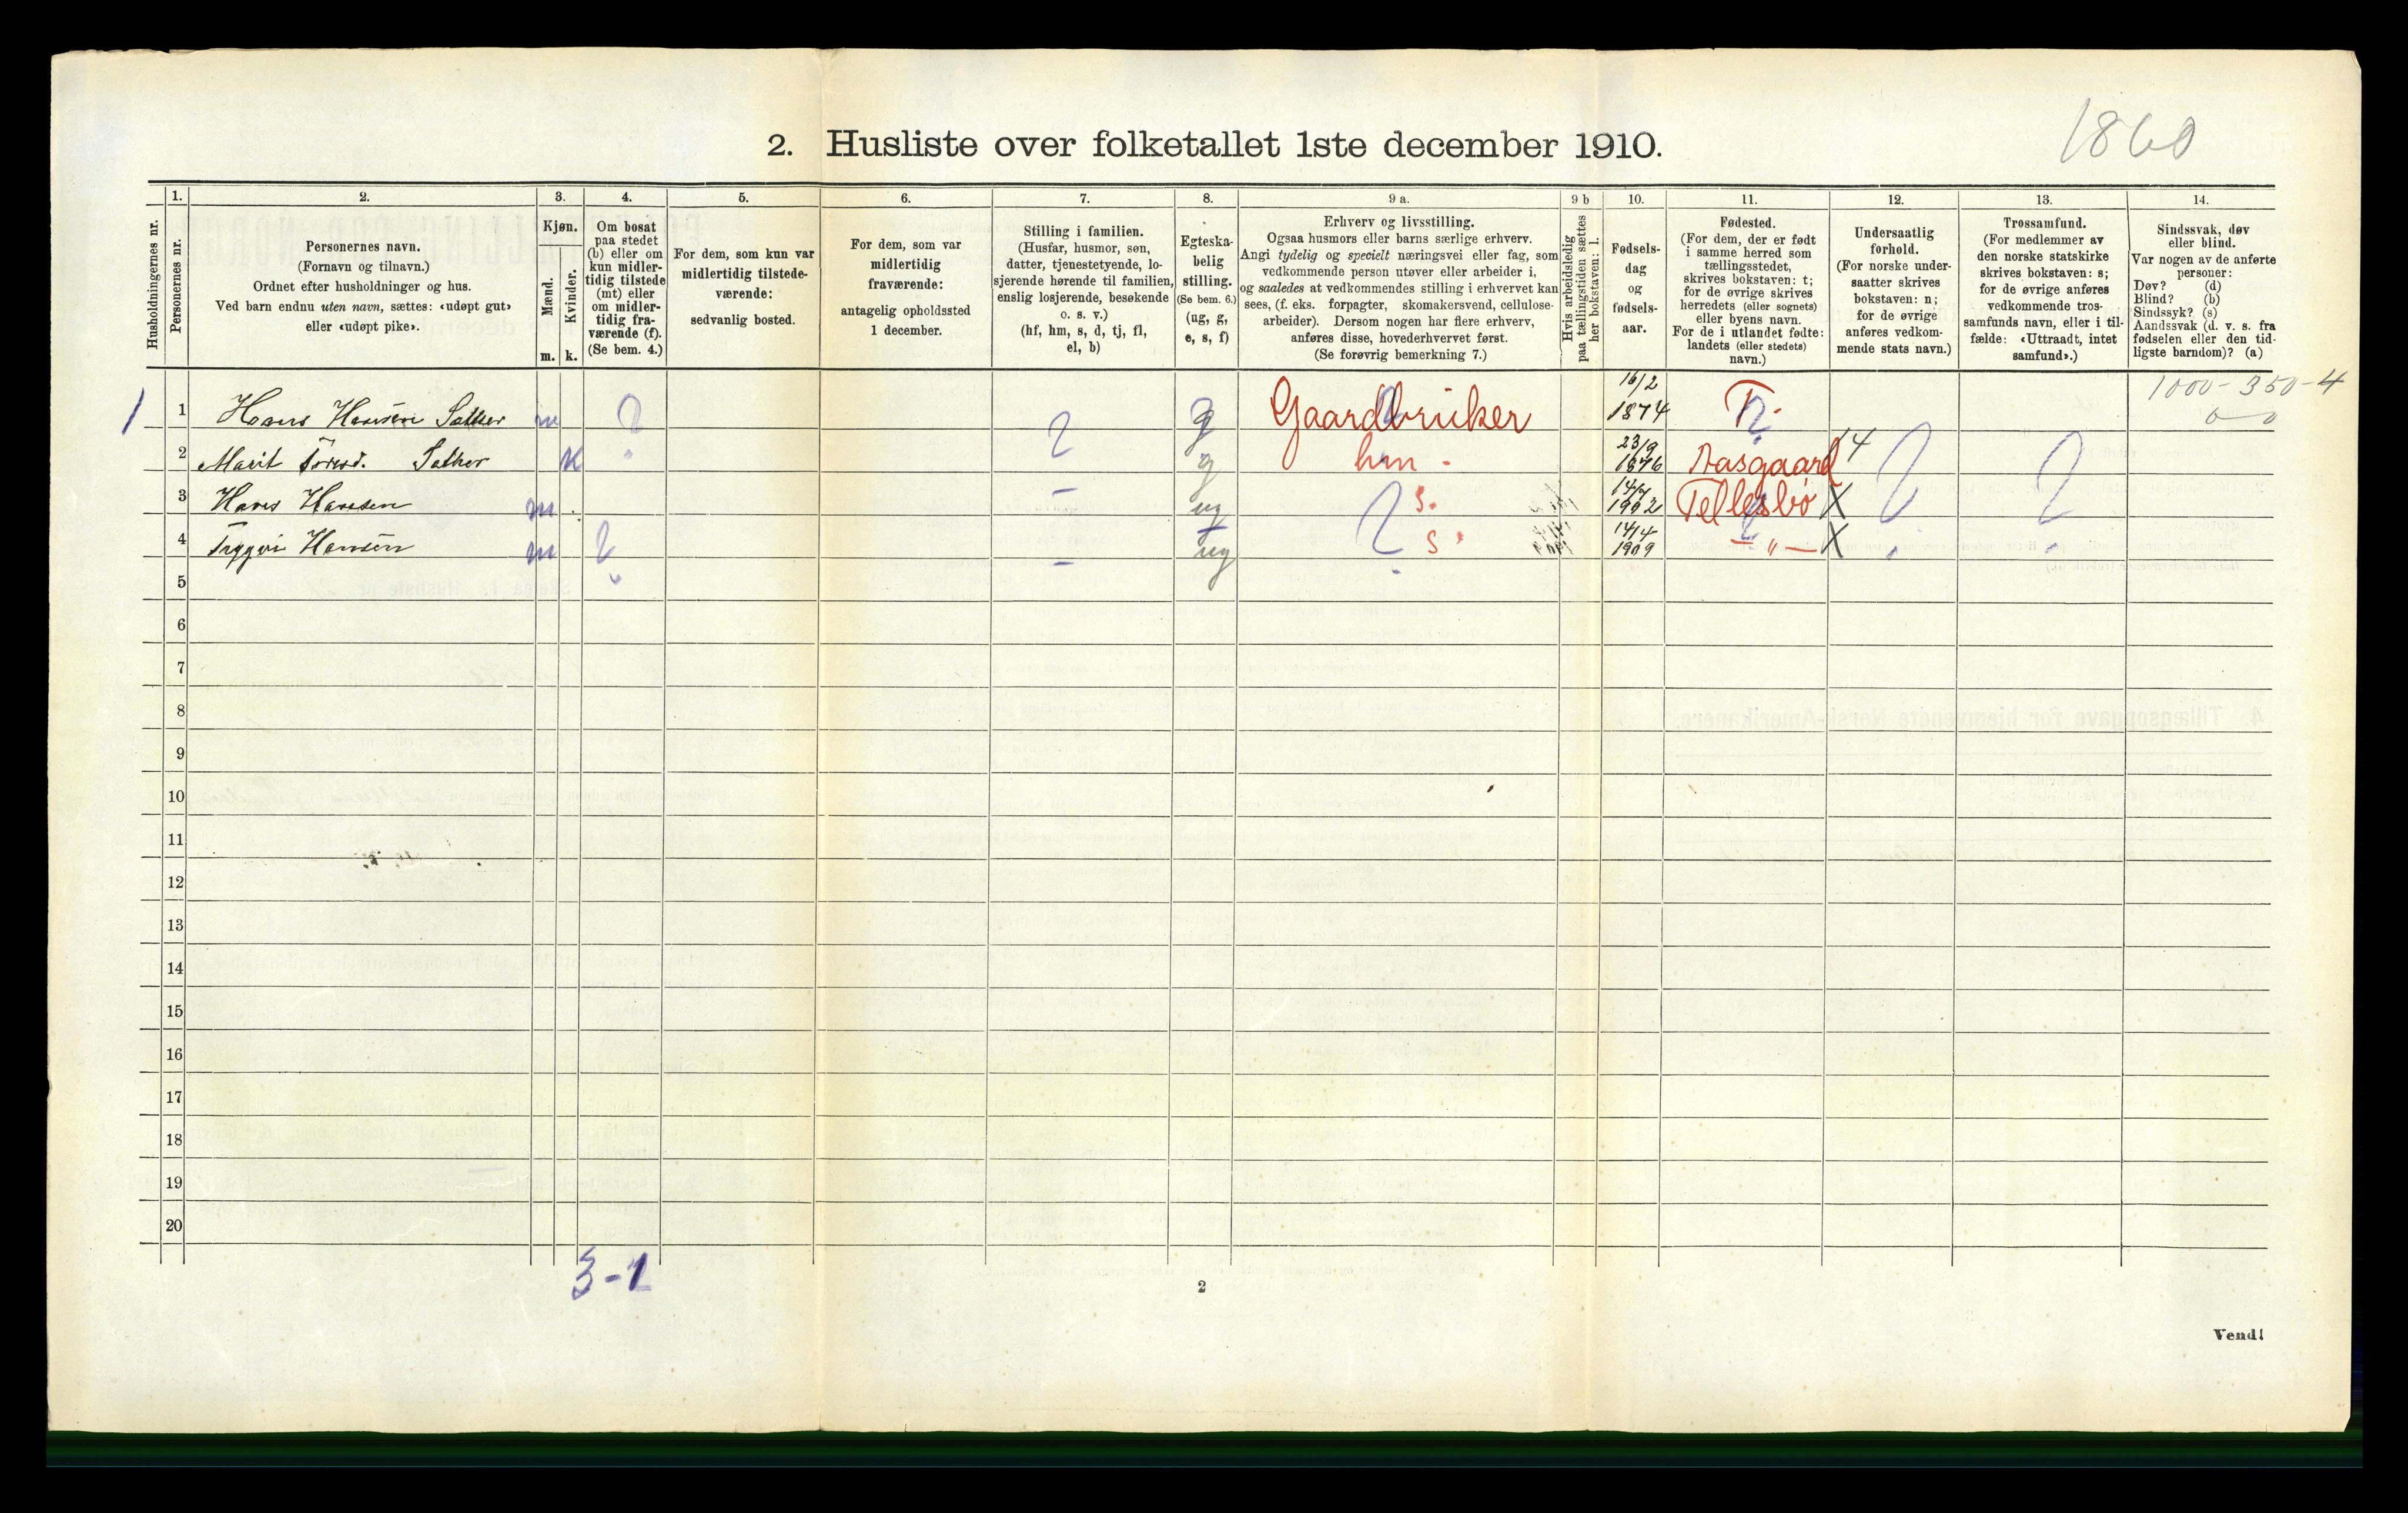 1860
2. Husliste over folketallet 1ste december 1910.
Husholdningernes nr.
1.
Personernes nr.
2.
Personernes navn.
(Fornavn og tilnavn.)
Ordnet efter husholdninger og hus.
Ved barn endnu uten navn, sættes: «udøpt gut»
eller «udøpt pike».
3.
Kjøn.
Mænd.
Kvinder.
m. k.
4.
Om bosat
paa stedet
(b) eller om
kun midler-
tidig tilstede
(mt) eller
om midler-
tidig fra-
værende (f).
(Se bem. 4.)
5.
For dem, som kun var
midlertidig tilstede-
værende:
sedvanlig bosted.
6.
For dem, som var
midlertidig
fraværende:
antagelig opholdssted
1 december.
7.
Stilling i familien.
(Husfar, husmor, søn,
datter, tjenestetyende, lo-
sjerende hørende til familien,
enslig losjerende, besøkende
o. s. v.)
(hf, hm, s, d, tj, fl,
el, b)
8.
Egteska-
belig
stilling.
(Se bem. 6.)
(ug, g,
e, s, f)
9 a.
Erhverv og livsstilling.
Ogsaa husmors eller barns særlige erhverv.
Angi tydelig og specielt næringsvei eller fag, som
vedkommende person utøver eller arbeider i,
og saaledes at vedkommendes stilling i erhvervet kan
sees, (f. eks. forpagter, skomakersvend, cellulose-
arbeider). Dersom nogen har flere erhverv,
anføres disse, hovederhvervet først.
(Se forøvrig bemerkning 7.)
9 b
Hvis arbeidsledig
paa tællingstiden sættes
her bokstaven: l.
10.
Fødsels-
dag
og
fødsels-
aar.
11.
Fødested.
(For dem, der er født
i samme herred som
tællingsstedet,
skrives bokstaven: t;
for de øvrige skrives
herredets (eller sognets)
eller byens navn.
For de i utlandet fødte:
landets (eller stedets)
navn.)
12.
Undersaatlig
forhold.
(For norske under-
saatter skrives
bokstaven: n;
for de øvrige
anføres vedkom-
mende stats navn.)
13.
Trossamfund.
(For medlemmer av
den norske statskirke
skrives bokstaven: s;
for de øvrige anføres
vedkommende tros-
samfunds navn, eller i til-
fælde: «Uttraadt, intet
samfund».)
14.
Sindssvak, døv
eller blind.
Var nogen av de anførte
personer:
Døv? (d)
Blind? (b)
Sindssyk? (s)
Aandssvak (d. v. s. fra
fødselen eller den tid-
ligste barndom)? (a)
1 1 Hans Hansen Sæther m ? ? g Gaardbruker 16/2 1874 T. ? 1000-350-4
0-0
2 Marit Toresd. Sæther k g hm - 23/9 1876 Aasgaard 14 ? ?
3 Hans Hansen m ug ? s. 14/7 1902 Tellesbø X
4 Tryggve Hansen m ? ug s 14/4 1909 — " — X
5
6
7
8
9
10
11
12
13
14
15
16
17
18
19
20
3-1
2
Vend!